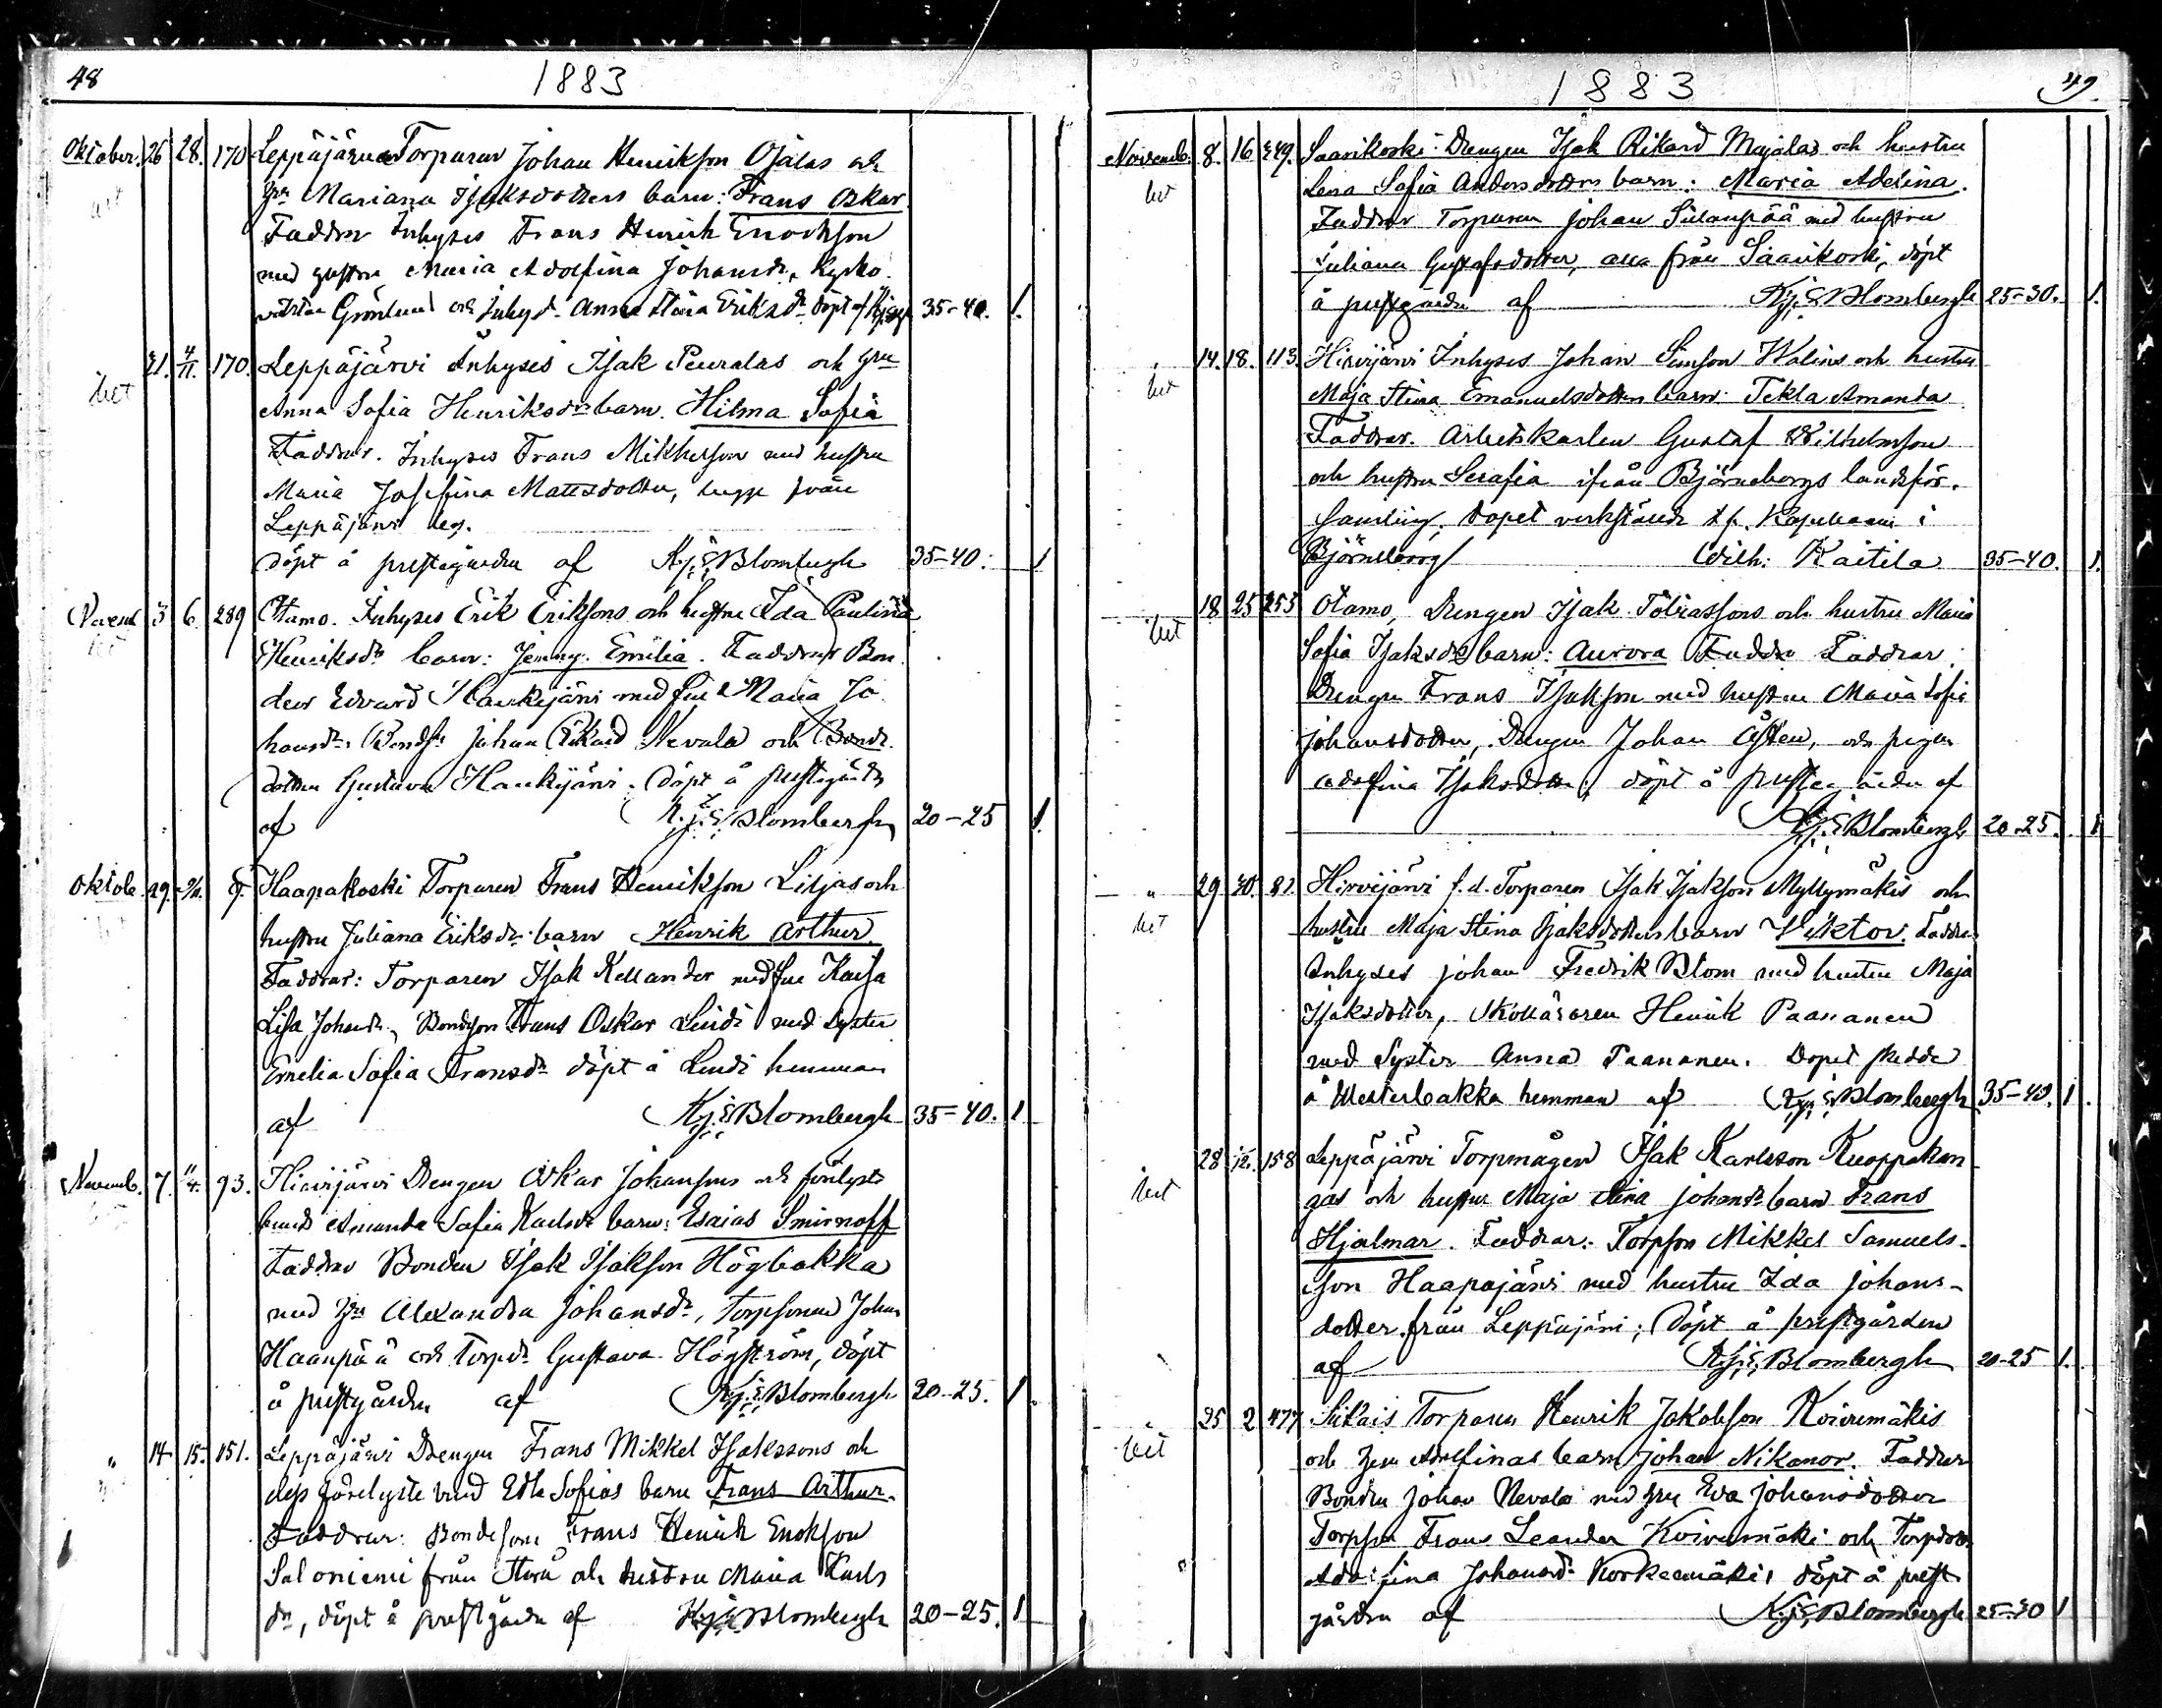 48
1883
Oktober. 26 28. 170 Leppäjärvi Torparen Johan Henrikson Ojalas och
Hu Mariana Isaksdotters barn: Frans Oskar.
Faddrar Inhyses Frans Henrik Enockson
med hustru Maria Adolfina Johansdr, Kyrko-
väktar Grönlund och Inhysd. Anna Stina Eriksdr döpt af KjEB 35-40. 1.
21. 4/11. 170. Leppäjärvi Inhyses Isak Peuralas och
Anna Sofia Henriksdr barn. Hilma Sofia
Faddrar. Inhyses Frans Mikkelson med hustru
Maria Josefina Mattsdotter, begge från
Leppäjärvi
döpt å prestgården af Kj. E. Blombergh 35-40. 1
Novemb 3 6. 289 Otamo. Inhyses Erik Eriksons och hustru Ida Paulina
Henriksdr barn: Jenny Emilia. Faddrar Bon-
den Edvard Haukijärvi med Maria Jo-
hansdr, Bondes. Johan Rikard Nevala och Bonde-
dottern Gustava Haukijärvi. Döpt å prestgården
af Kj. E. Blombergh 20-25 1.
Oktob. 29. Haapakoski Torparen Frans Henrikson Liljas och
hustru Juliana Eriksdr. barn Henrik Arthur.
Faddrar: Torparen Isak Kellander med hu Kaisa
Lisa Johansdr, Bondeson Frans Oskar Lindi med Syster
Emelia Sofia Fransdr döpt å Lindi hemman
af Kj. E. Blombergh 35-40. 1
Novemb. 7. 11/4. 93. Hirvijärvi Drengen Oskar Johansons och förelyste
brud Amanda Sofia Karlsdr barn: Esaias Smirnoff
Faddrar Bonden Isak Isakson Högbakka
med Hu Alexandra Johansdr, Torpsonen Johan
Haanpää och Torpdr. Gustava Högström, döpt
å prestgården af Kj. E. Blombergh 20-25. 1
" 14 15. 151. Leppäjärvi Drengen Frans Mikkel Isakssons och
dess förelyste brud Edla Sofias barn Frans Arthur.
Faddrar: Bondeson Frans Henrik Enokson
Saloniemi från och hustru Maria Karls
dr, döpt å prestgården af Kj. E. Blombergh 20-25. 1
1883
49.
Novemb. 8. 16 249. Saarikoski Drengen Isak Rikard Majalas och hustru
bet Lena Sofia Andersdotters barn: Maria Adelina.
Faddrar Torparen Johan Sillanpää med hustru
Juliana Gustafsdotter, alla från Saarikoski, döpt
å prestgården af Kj. E. Blombergh 25-30. 1.
14. 18. 113. Hirvijärvi Inhyses Johan Simson Walins och hustru
bet Maja Stina Emanuelsdotters barn: Tekla Amanda
Faddrar. Arbetskarlen Gustaf Wilhelmson
och hustru Serafia ifrån Björneborgs landsför-
samling. Dopet verkstäldt af Kapellanen i
Björneborg Wilh: Kaitila 35-40. 1.
18 25 253 Otamo, Drengen Isak Tobiassons och hustru Maria
bet Sofia Isaksdrs barn: Aurora Faddrar
Drengen Frans Isakson med hustru Maria Sofia
Johansdotter, Drengen Johan Åsten, och pigan
Adolfina Isaksdotter, döpt å prestegården af
Kj. E. Blombergh 20-25. 1
" 29 30. 82. Hirvijärvi f.d. Torparen Isak Isakson Myllymäkis och
bet hustru Maja Stina Isaksdotters barn Viktor. Faddrar
Inhyses Johan Fredrik Blom med hustru Maja
Isaksdotter, Skolläraren Henrik Paananen
med Syster Anna Paananen. Dopet skedde
å Westerbakka hemman af Kj. E. Blombergh 35-40. 1.
28 /12. 158 Leppäjärvi Torpmågen Isak Karlsson Kuoppakan-
bet gas och hustru Maja Stina Johansdr barn Frans
Hjalmar. Faddrar: Torpson Mikkel Samuels-
son Haapajärvi med hustru Ida Johans-
dotter från Leppäjärvi; Döpt å prestgården
af Kj. E. Blombergh 20-25 1.
25 2 477 Siikais Torparen Henrik Jakobson Koivumäkis
bet och Adolfinas barn Johan Nikanor. Faddrar
Bonden Johan Nevala med Hu Eva Johansdotter
Torpson Frans Leander Koivumäki och Torpdotter
Adolfina Johansdr Korkeamäki, döpt å prest-
gården af Kj. E. Blombergh 25-30 1